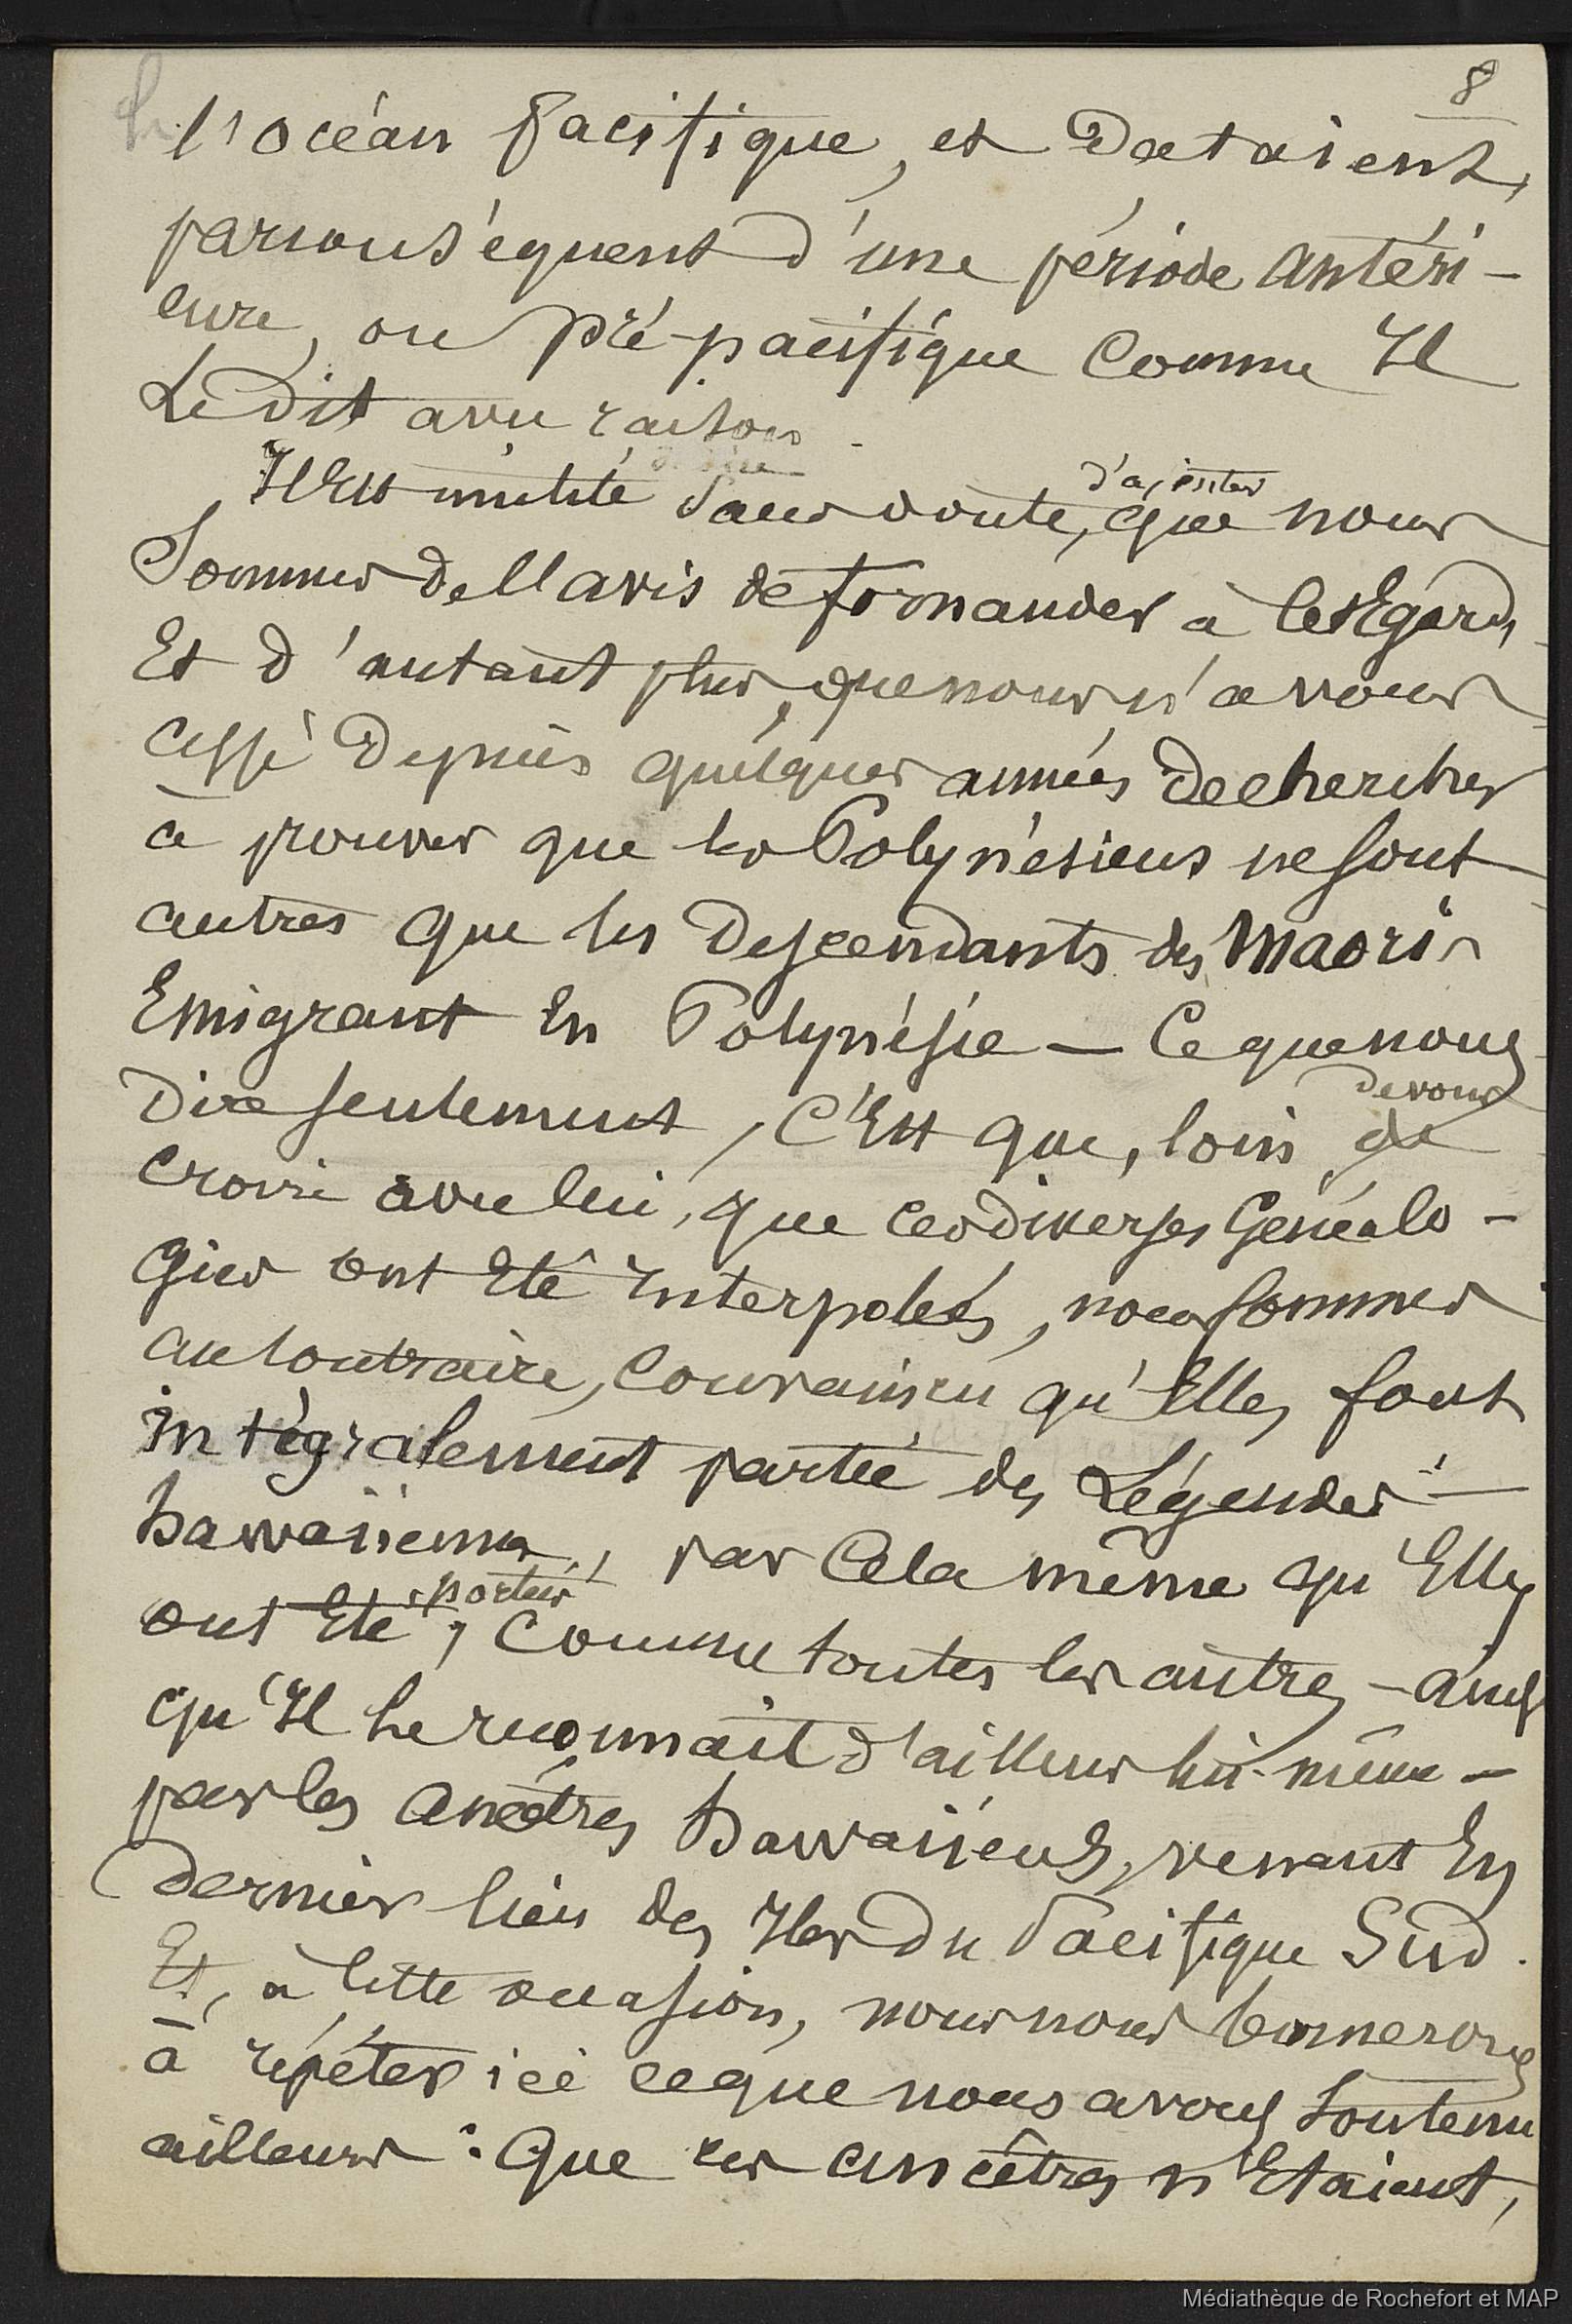 8
l'océan Pacifique, et dataient,
parconséquent d'une période antéri-
eure, ou pré-pacifique comme Il
Le dit avec raison.
Il Est inutile sans doute, d'ajouter que nous
Sommes de l'avis de fornander à cet Egard,
Et d'autant plus, que nous n'avons
cessé depuis quelques années de chercher
à prouver que les Polynésiens ne sont
autres que les Descendants des Maoris
Emigrant En Polynésie — Ce que nous devons
Dire seulement, C'Est que, loin de
croire avec lui, que ces diverses Généalo-
gies ont Eté interpolées, nous sommes
au contraire, Convaincu qu'Elles font
intégralement partie des Légendes
hawaiiennes, par Cela même qu'Elles
ont Eté portées, Comme toutes les autres - ainsi
qu'Il le reconnait d'ailleurs lui-même -
par les ancêtres hawaiiens, venant En
dernier lieu des Iles du Pacifique Sud.
Et, à cette occasion, nous nous bornerons
à répéter ici ce que nous avons soutenu
ailleurs : Que ces ancêtres n'Etaient,
Médiathèque de Rochefort et MAP